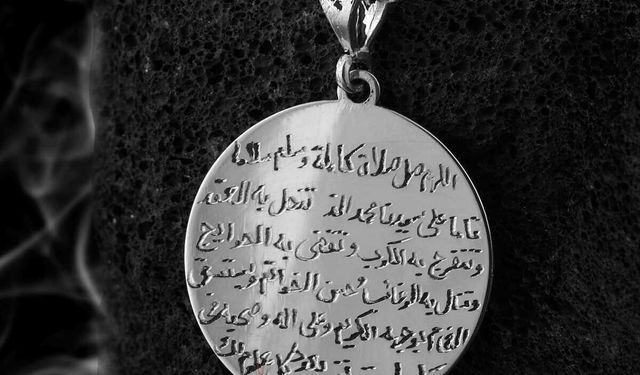 اللهم صل صلاة كاملة وسلم سلاما
تاما على سيدنا محمد الذ تنحل به العقد
وتنفرج به الكرب وتقضى به الحوايج
وتنال به الرغائب وحسن الخواتم ويستسقى
الغمام بوجهه الكريم وعلى اله وصحبه فى